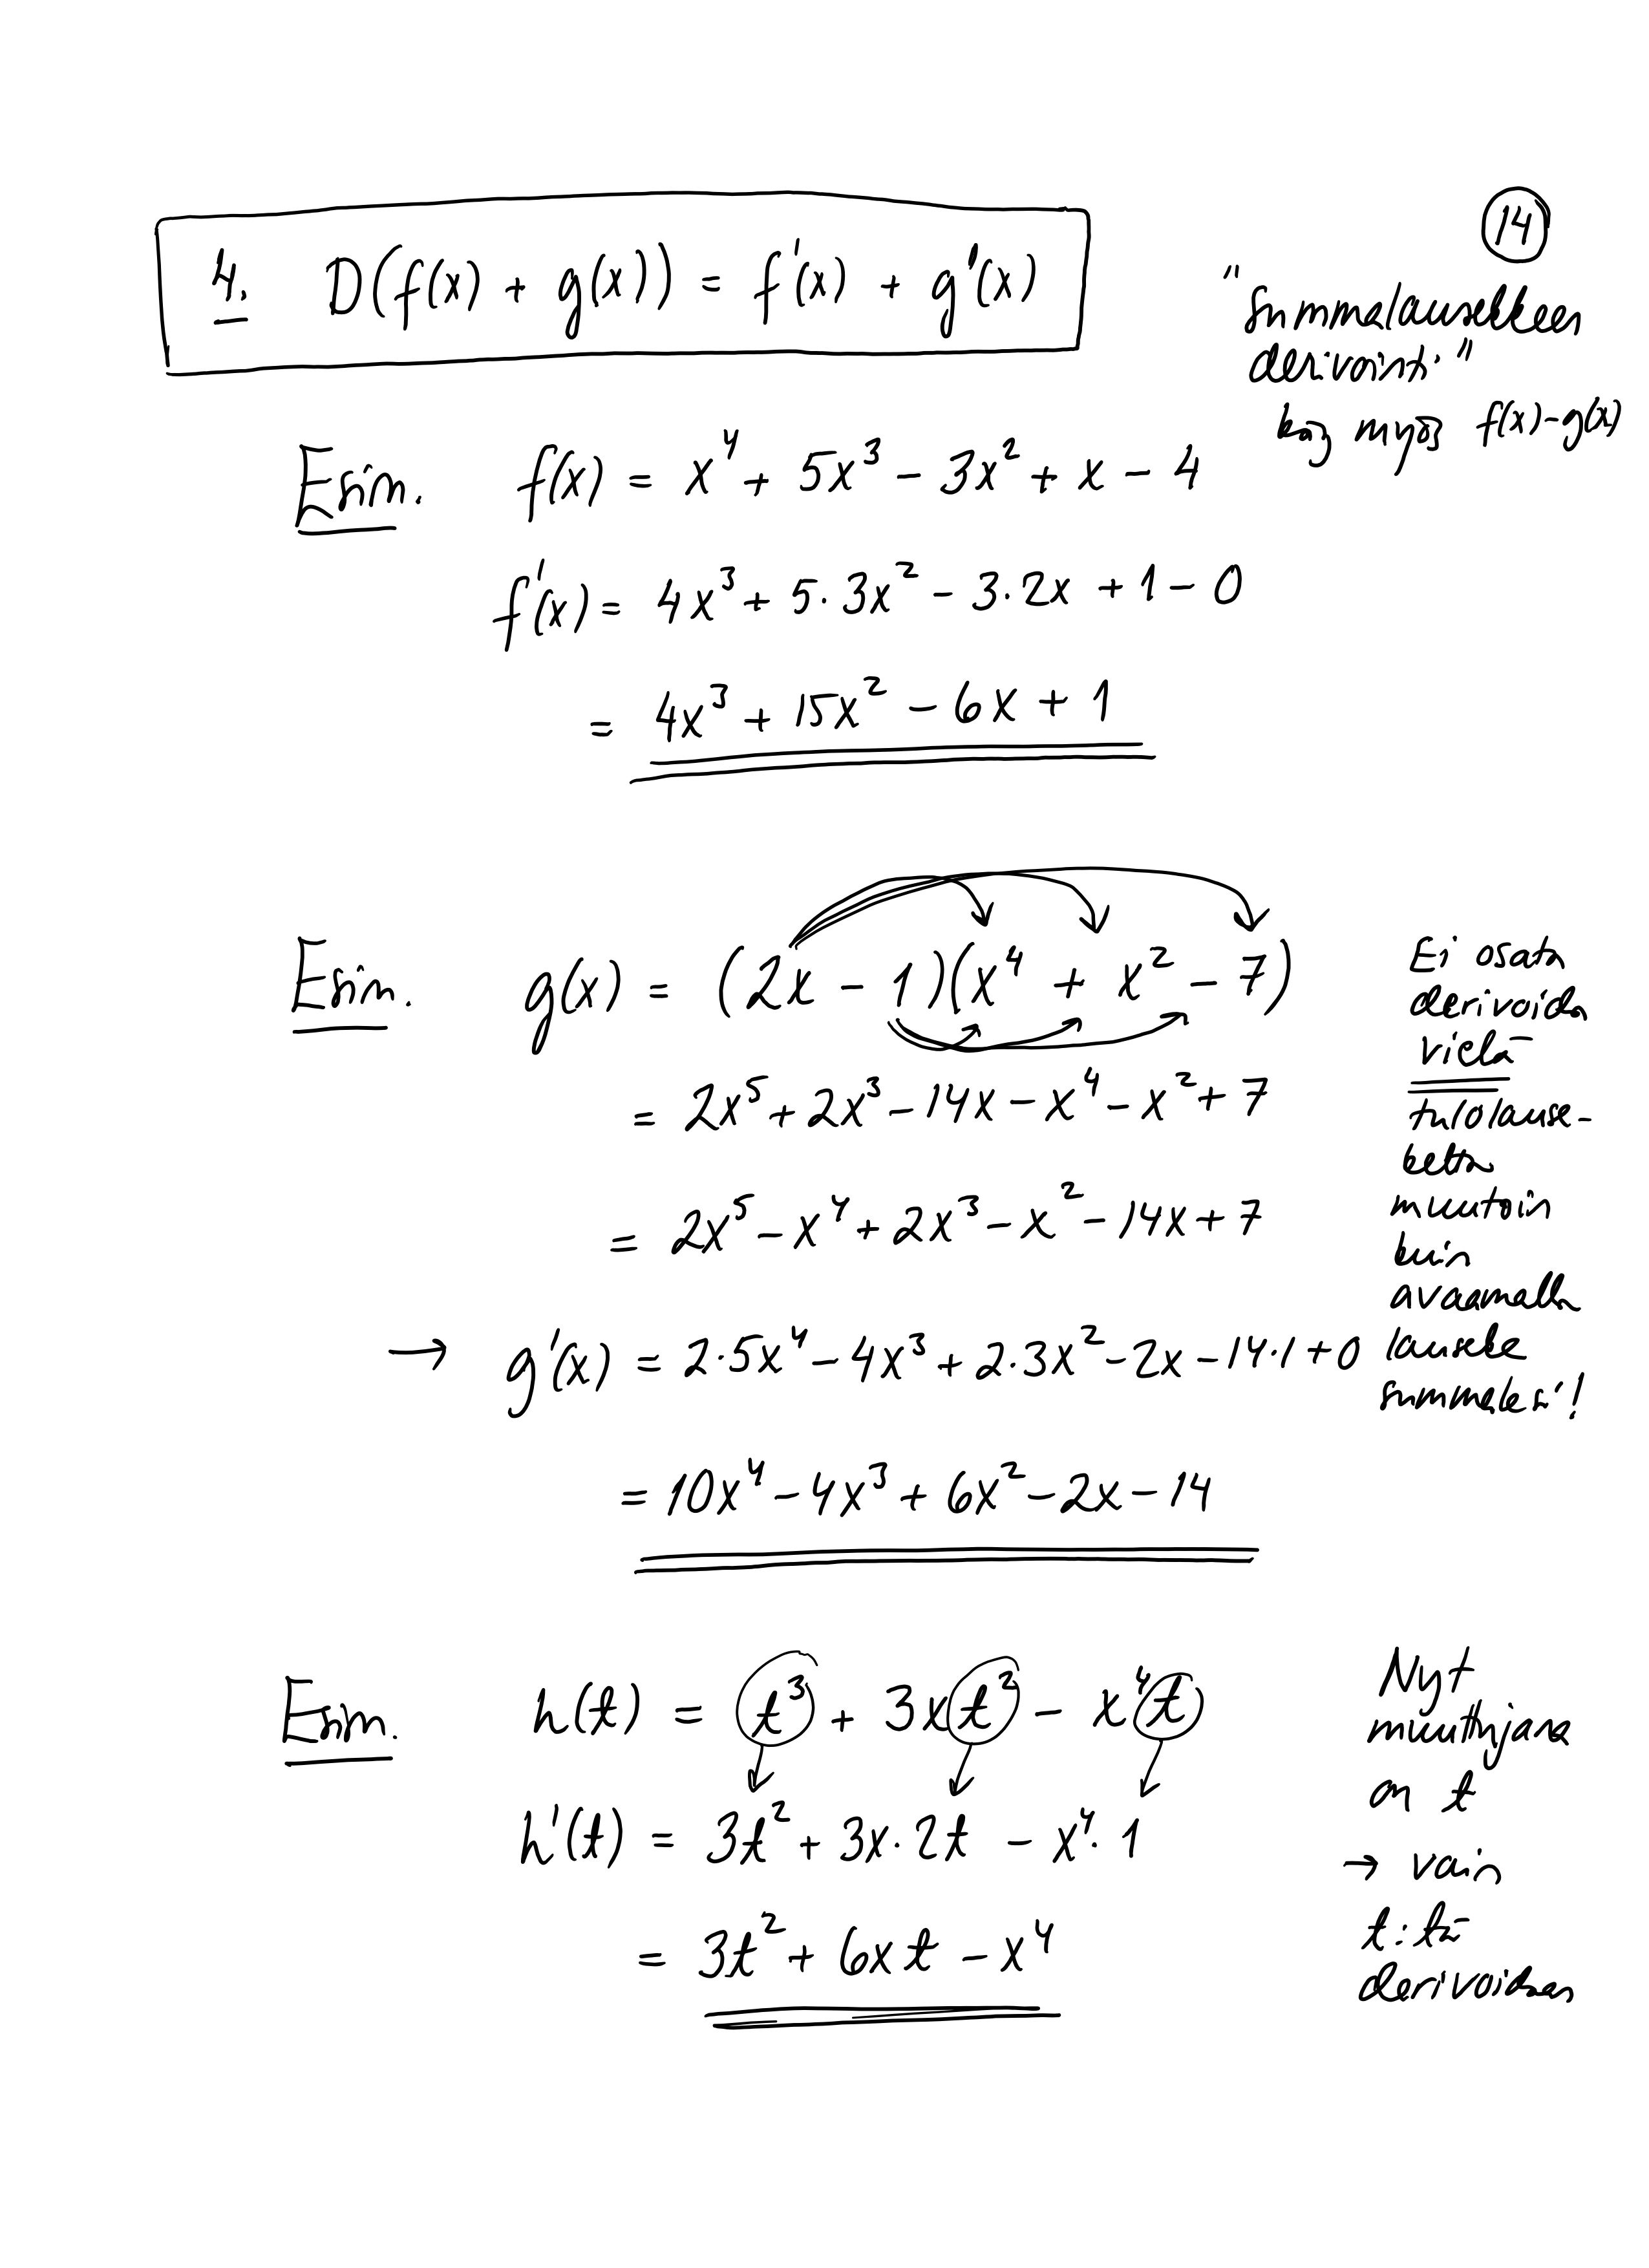 14
4. D(f(x) + g(x)) = f'(x) + g'(x)
"Summalausekkeen
derivointi"
käy myös f(x)-g(x)
Esim. f(x) = x⁴ + 5x³ - 3x² + x - 4
f'(x) = 4x³ + 5·3x² - 3·2x + 1 - 0
= 4x³ + 15x² - 6x + 1
Esim. g(x) = (2x - 1)(x⁴ + x² - 7)
= 2x⁵ + 2x³ - 14x - x⁴ - x² + 7
= 2x⁵ - x⁴ + 2x³ - x² - 14x + 7
→ g'(x) = 2·5x⁴ - 4x³ + 2·3x² - 2x - 14·1 + 0
= 10x⁴ - 4x³ + 6x² - 2x - 14
Ei osata
derivoida
vielä
tulolause-
ketta
muutoin
kuin
avaamalla
lauseke
summaksi!
Esim. h(t) = t³ + 3xt² - x⁴t
h'(t) = 3t² + 3x·2t - x⁴·1
= 3t² + 6xt - x⁴
Nyt
muuttujana
on t
→ vain
t:tä
derivoidaan